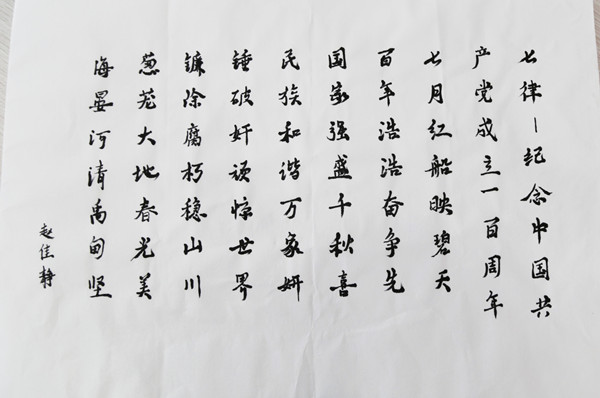 七律－纪念中国共
产党成立一百周年
七月红船映碧天
百年浩浩奋争先
国家强盛千秋喜
民族和谐万家妍
锤破奸顽惊世界
镰除腐朽穏山川
葱茏大地春光美
海晏河清禹甸坚
赵佳静